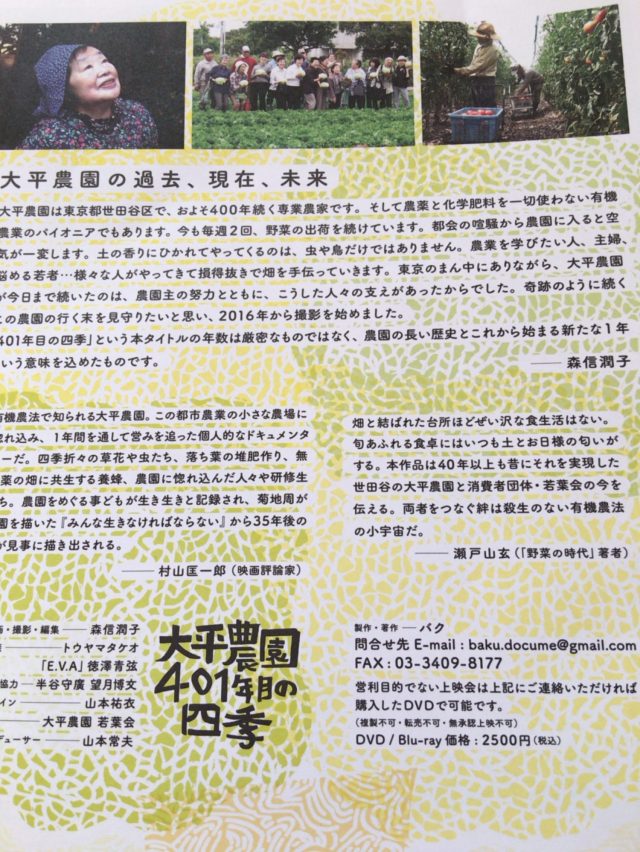 大平農園の過去、現在、未来
大平農園は東京都世田谷区で、およそ400年続く専業農家です。そして農薬と化学肥料を一切使わない有機
農業のパイオニアでもあります。今も毎週2回、野菜の出荷を続けています。都会の喧騒から農園に入ると空
気が一変します。土の香りにひかれてやってくるのは、虫や鳥だけではありません。農業を学びたい人、主婦、
悩める若者…様々な人がやってきて損得抜きで畑を手伝っていきます。東京のまん中にありながら、大平農園
が今日まで続いたのは、農園主の努力とともに、こうした人々の支えがあったからでした。奇跡のように続く
この農園の行く末を見守りたいと思い、2016年から撮影を始めました。
401年目の四季」という本タイトルの年数は厳密なものではなく、農園の長い歴史とこれから始まる新たな1年
いう意味を込めたものです。
── 森信潤子
有機農法で知られる大平農園。この都市農業の小さな農場に
惚れ込み、1年間を通して営みを追った個人的なドキュメンタ
ーだ。四季折々の草花や虫たち、落ち葉の堆肥作り、無
薬の畑に共生する養蜂、農園に惚れ込んだ人々や研修生
ち。農園をめぐる事どもが生き生きと記録され、菊地周が
園を描いた『みんな生きなければならない』から35年後の
が見事に描き出される。
── 村山匡一郎（映画評論家）
畑と結ばれた台所ほどぜい沢な食生活はない。
旬あふれる食卓にはいつも土とお日様の匂いが
する。本作品は40年以上も昔にそれを実現した
世田谷の大平農園と消費者団体・若葉会の今を
伝える。両者をつなぐ絆は殺生のない有機農法
の小宇宙だ。
── 瀬戸山玄（「野菜の時代」著者）
・撮影・編集 ── 森信潤子
トウヤマタケオ
「E.V.A」徳澤青弦
協力 ── 半谷守廣 望月博文
イン ── 山本祐衣
── 大平農園 若葉会
デューサー ── 山本常夫
大平農園
401年目の
四季
製作・著作 ── バク
問合せ先 E-mail : baku.docume@gmail.com
FAX : 03-3409-8177
営利目的でない上映会は上記にご連絡いただければ
購入したDVDで可能です。
（複製不可・転売不可・無承認上映不可）
DVD / Blu-ray 価格 : 2500円（税込）